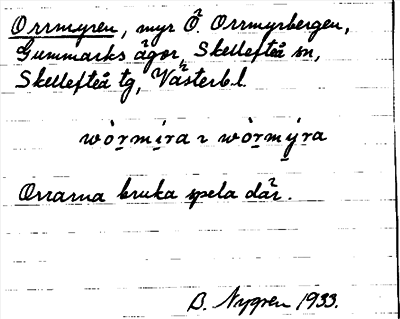 Orrmyren, myr Ö. Orrmyrbergen,
Gummarks ägor, Skellefteå sn,
Skellefteå tg, Västerb.l.
wòrmira ɿ wòrmýra
Orrarna bruka spela där.
B. Nygren 1933.